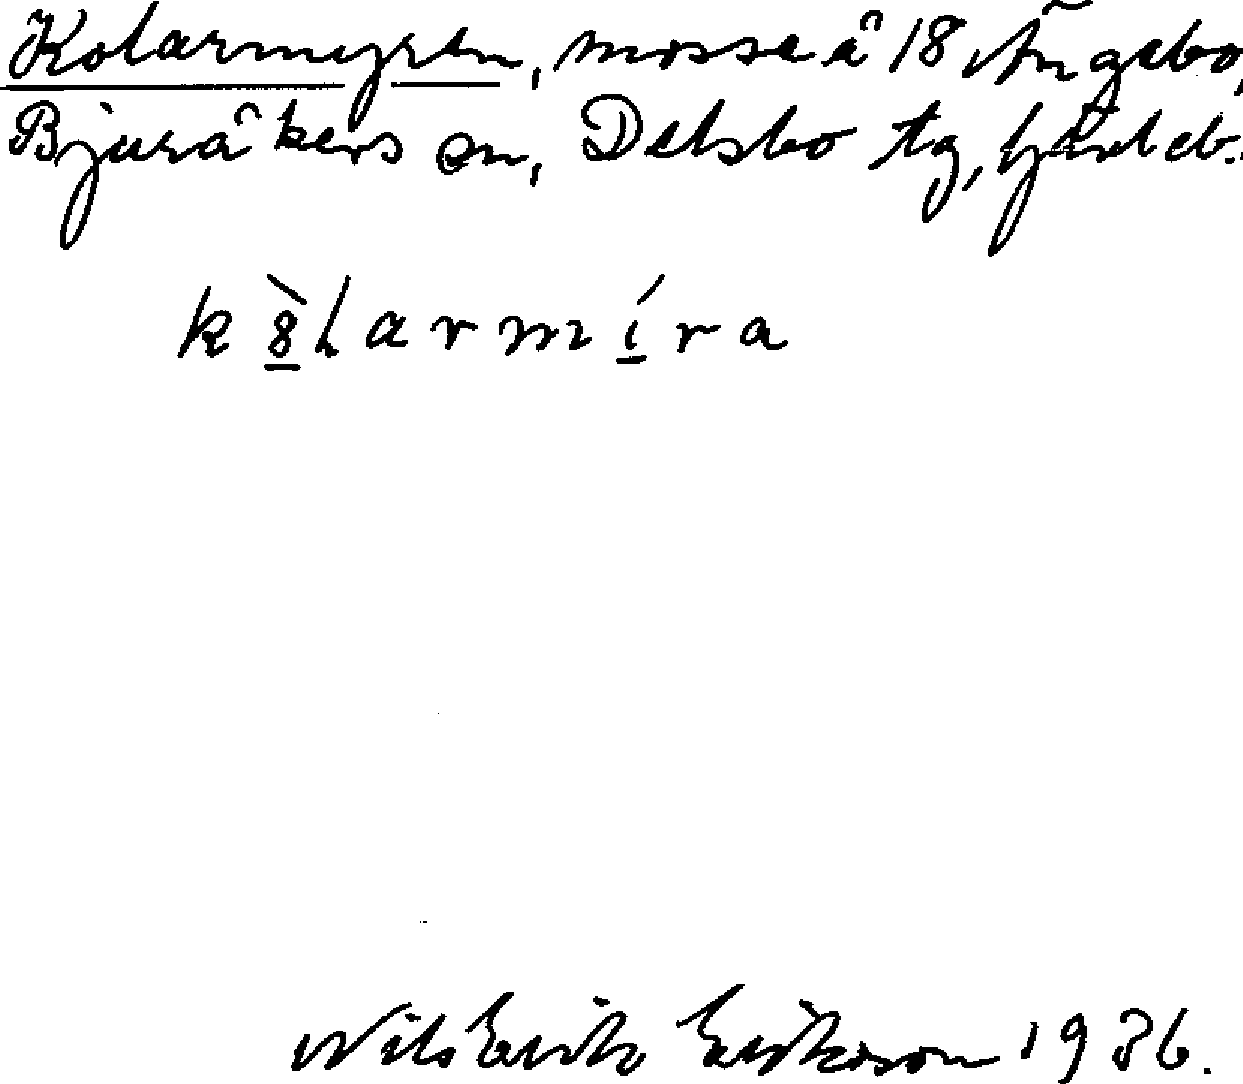 Kolarmyren, mosse å 18 Ängebo,
Bjuråkers sn, Delsbo tg, Gävleb.
k 8̲̀ l a r m í̲ r a
Nils Erik Erikson 1936.